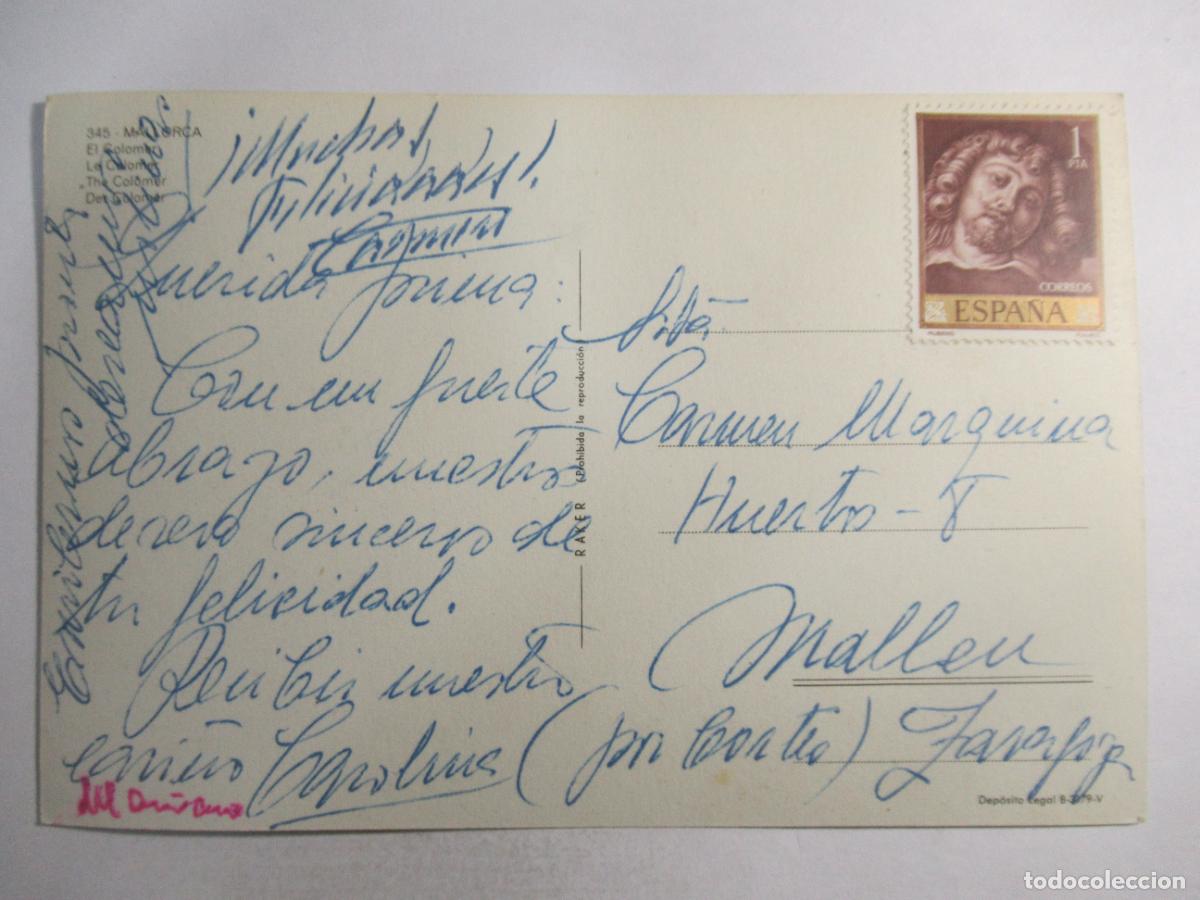 345 - MALLORCA
El Colomer
Le Colomer
"The Colomer
Der Colomer
¡Muchas
felicidades!
Carmen
Querida prima:
Con un fuerte
abrazo, nuestro
deseo sincero de
tu felicidad.
Recibir nuestro
cariño Carolina
RAKER (Prohibida la reproducción)
1
PTA
CORREOS
ESPAÑA
RUBENS
Srta.
Carmen Marquina
Huertos - 8
Mallen
(por Cortes) Zaragoza
Depósito Legal B-3179-V
todocoleccion